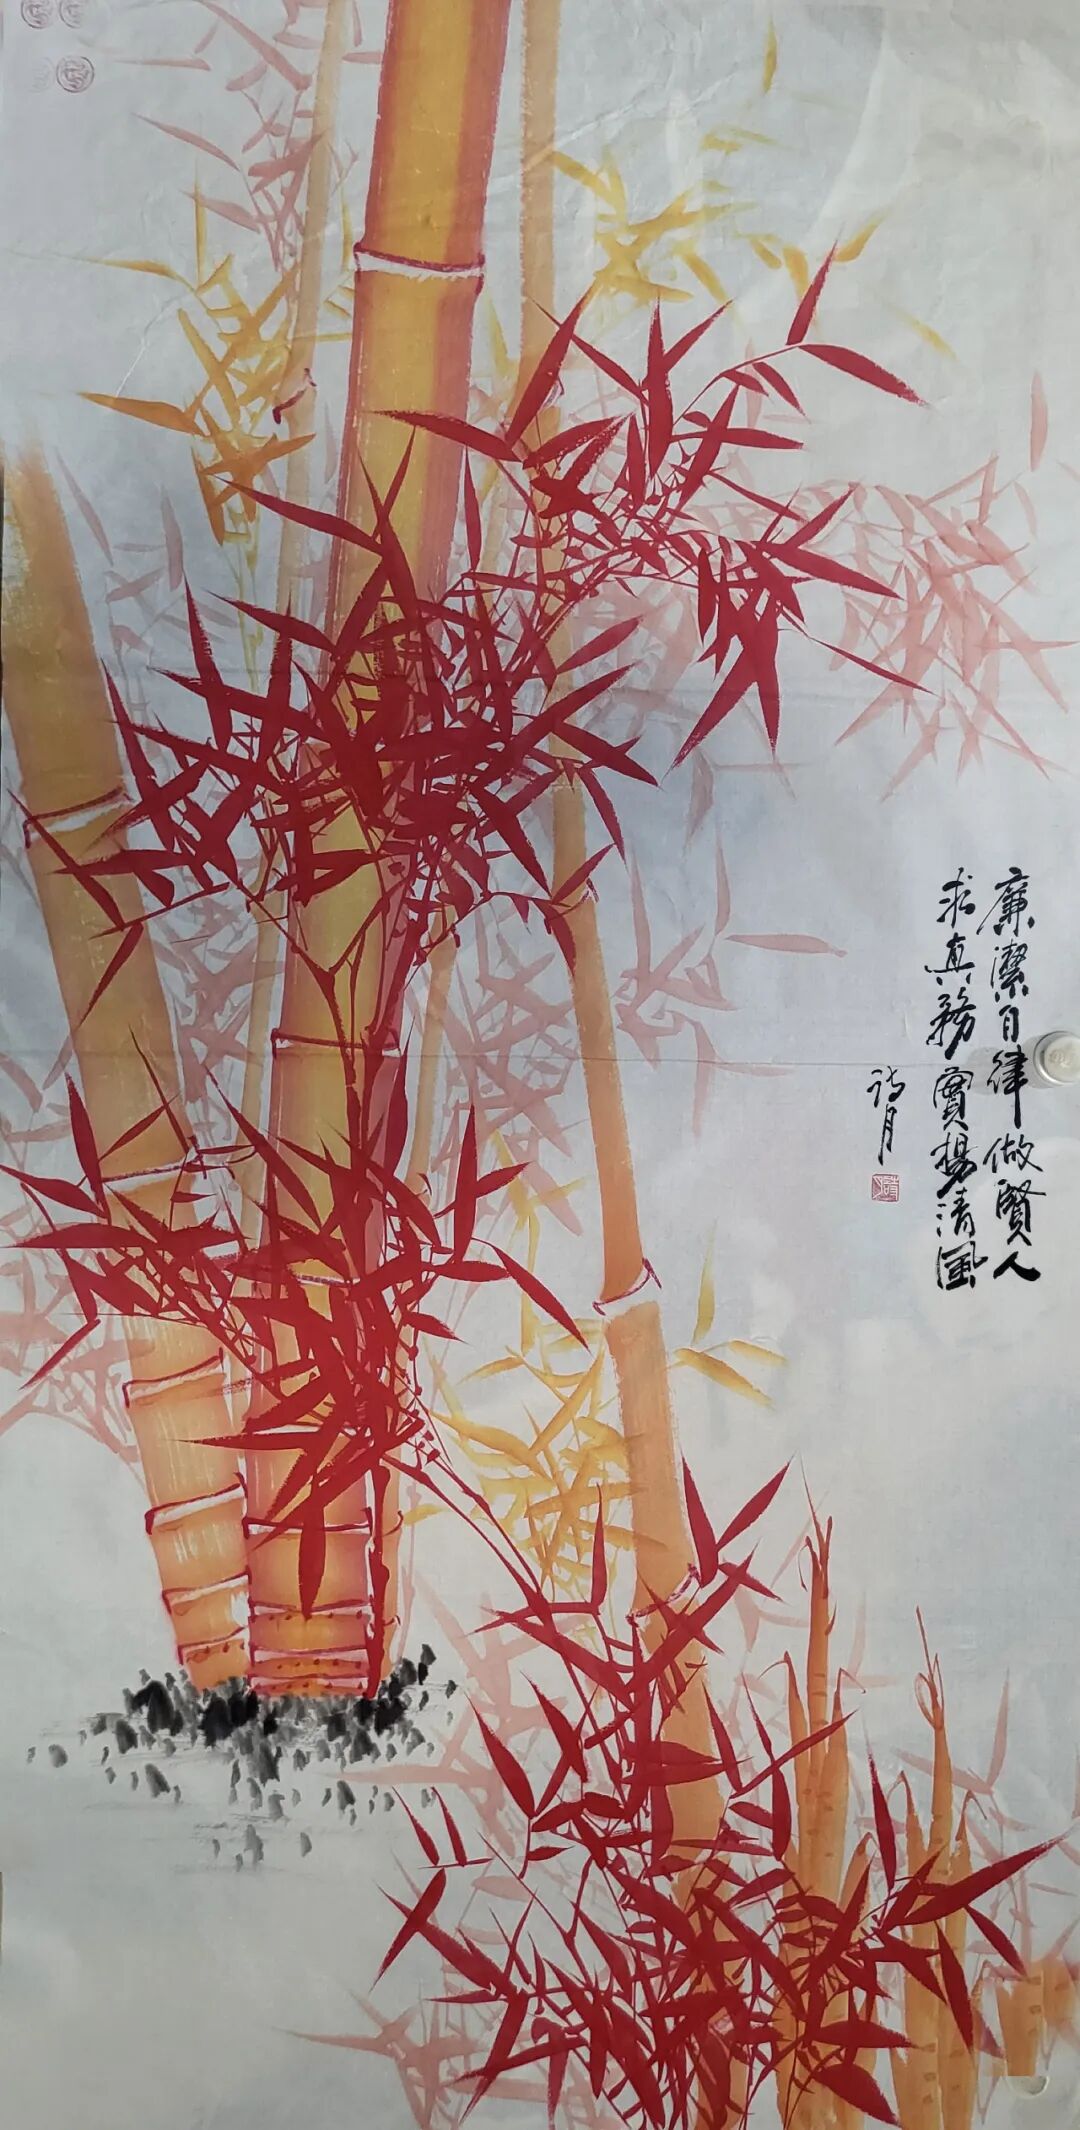 廉潔自律做賢人
求真務實揚清風
詩月